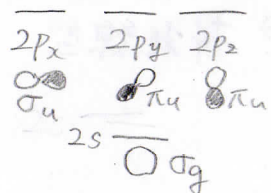 2px 2py 2pz
σu πu πu
2s σg